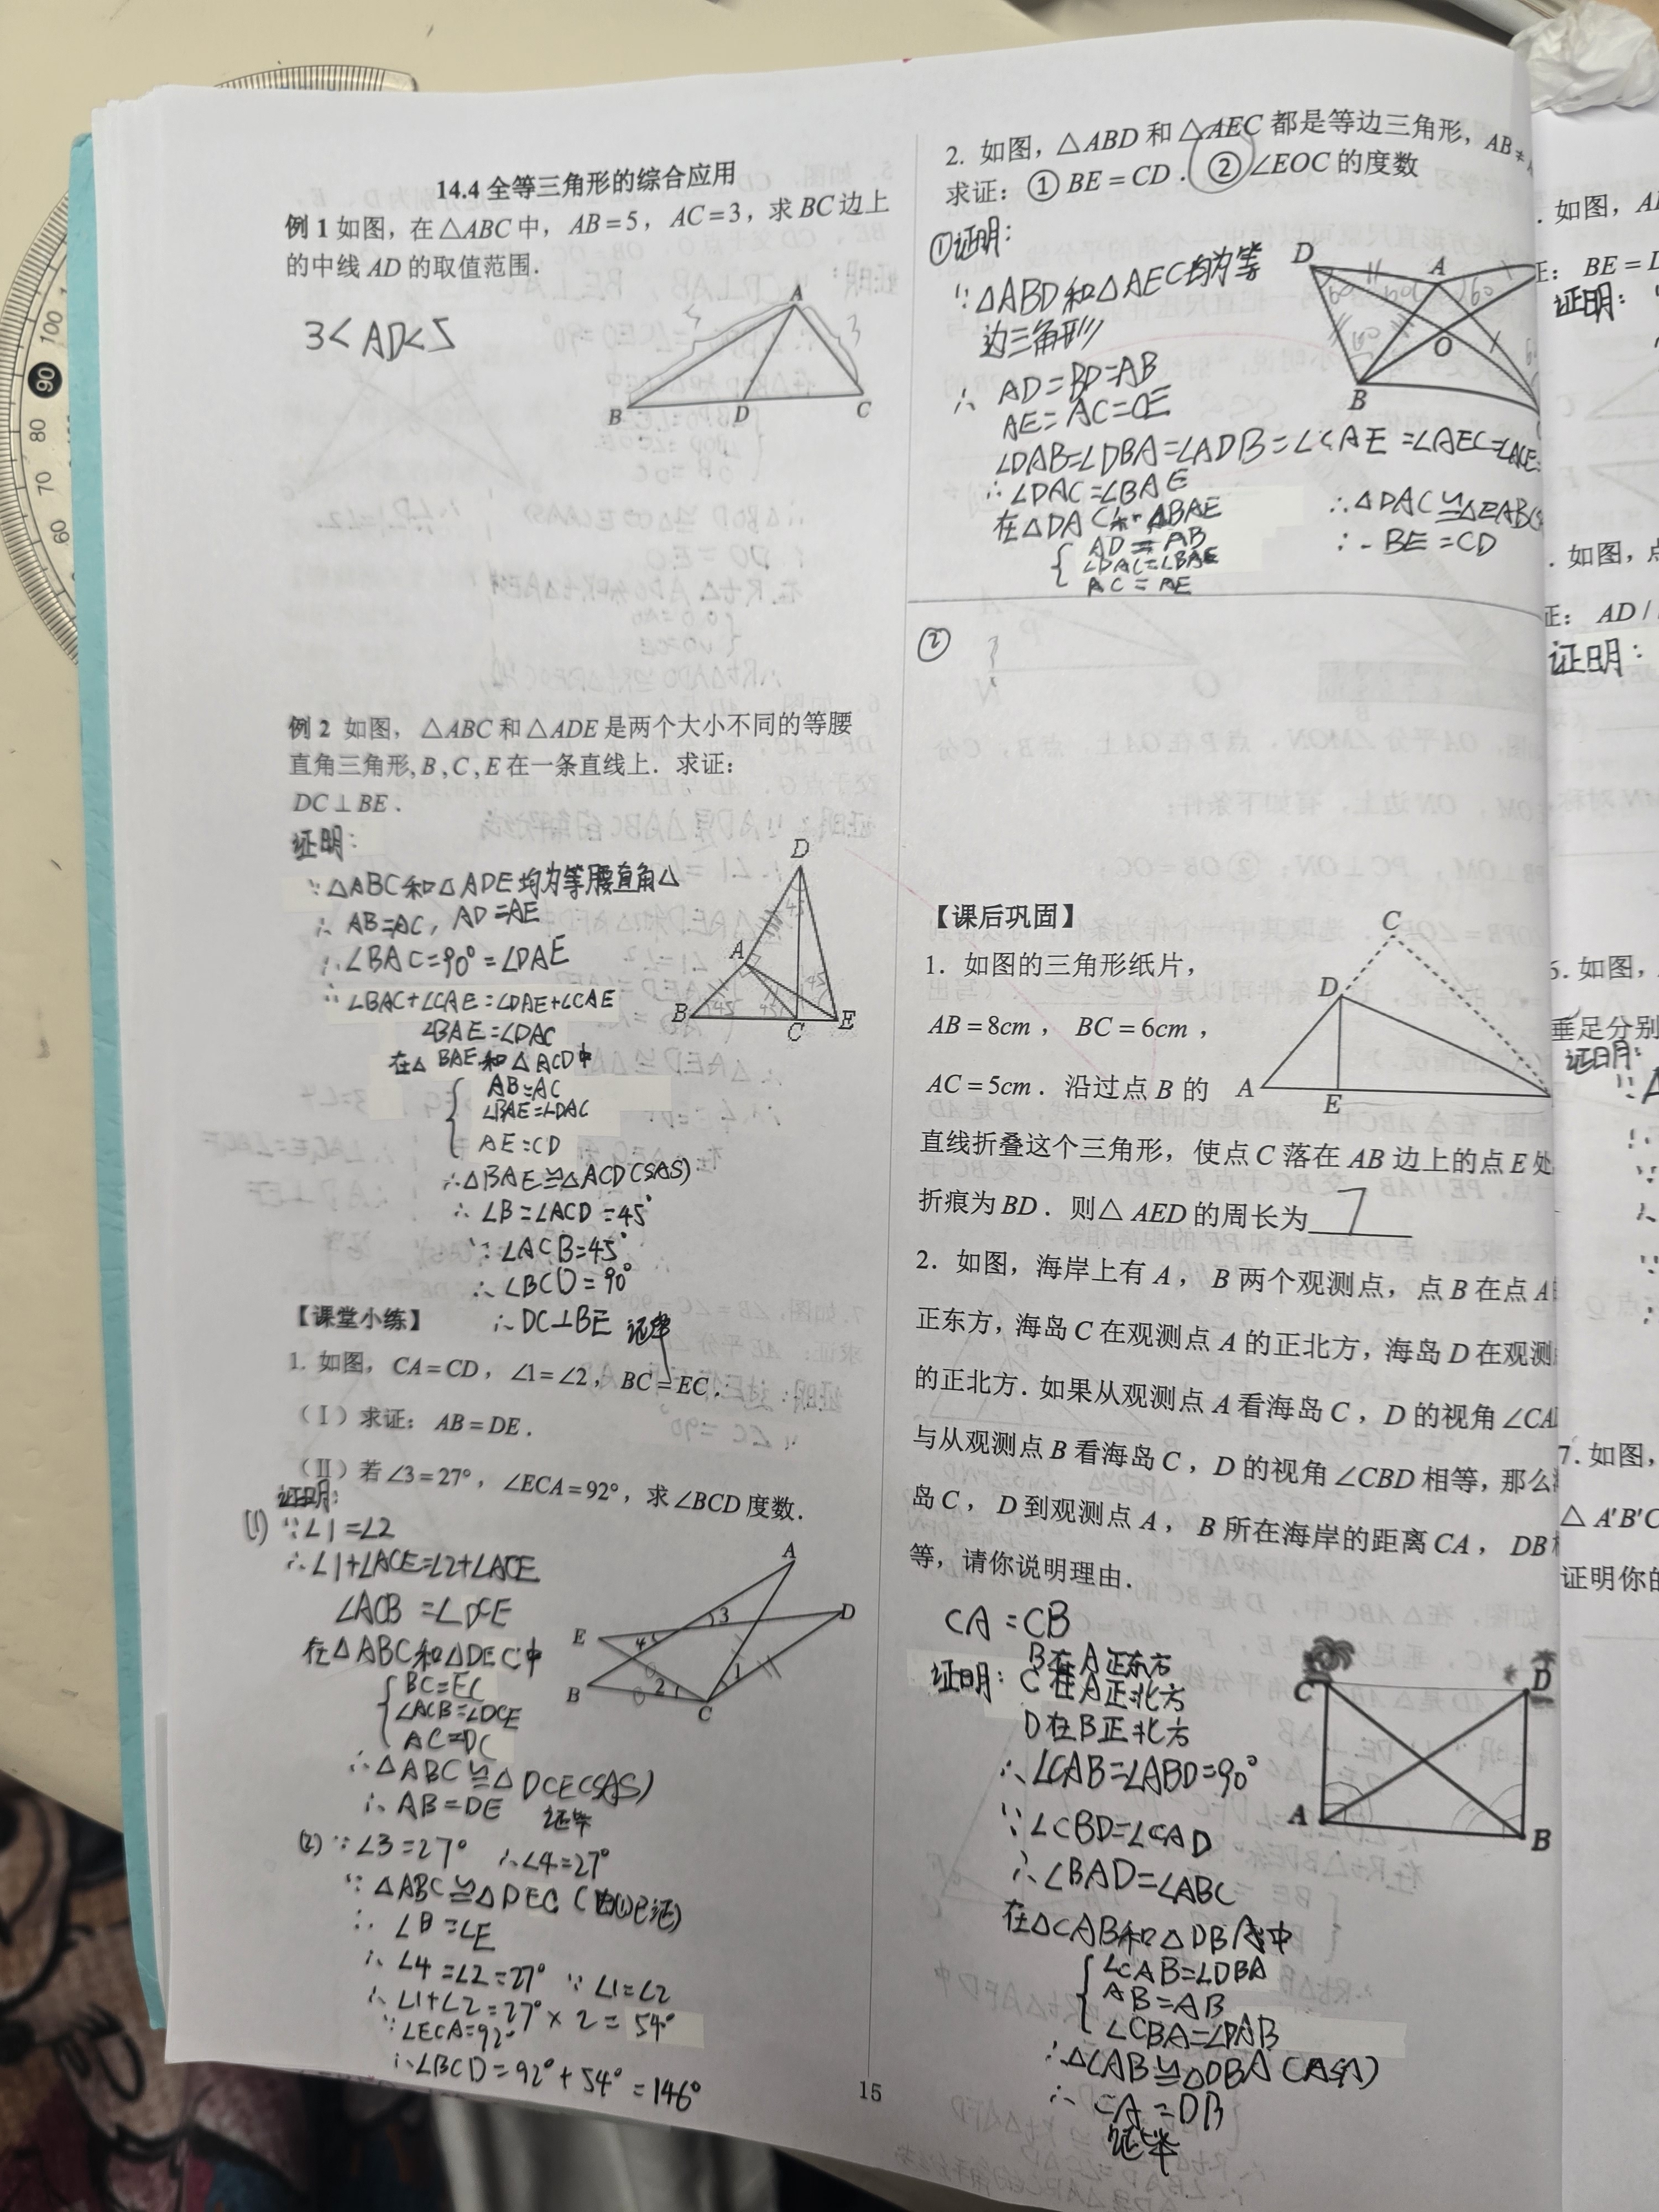 14.4 全等三角形的综合应用
例 1 如图，在△ABC 中，AB=5，AC=3，求 BC 边上
的中线 AD 的取值范围.
3<AD<5
A
B
D
C
例 2 如图，△ABC 和△ADE 是两个大小不同的等腰
直角三角形,B,C,E 在一条直线上. 求证:
DC⊥BE.
证明:
∵△ABC和△ADE均为等腰直角△
∴ AB=AC, AD=AE
∴∠BAC=90°=∠DAE
∴∠BAC+∠CAE=∠DAE+∠CAE
∠BAE=∠DAC
在△BAE和△ACD中
AB=AC
∠BAE=∠DAC
AE=CD
∴△BAE≌△ACD(SAS)
∴ ∠B=∠ACD=45°
∵ ∠ACB=45°
∴ ∠BCD=90°
∴ DC⊥BE 证毕
D
A
B
C
E
【课堂小练】
1. 如图，CA=CD，∠1=∠2，BC=EC.
（Ⅰ）求证：AB=DE.
（Ⅱ）若∠3=27°，∠ECA=92°，求∠BCD度数.
证明:
(1) ∵∠1=∠2
∴∠1+∠ACE=∠2+∠ACE
∠ACB=∠DCE
在△ABC和△DEC中
BC=EC
∠ACB=∠DCE
AC=DC
∴△ABC≌△DCE(SAS)
∴ AB=DE 证毕
A
3
D
E
4
B
2
1
C
(2) ∵ ∠3=27° ∴∠4=27°
∵ △ABC≌△DEC (由(1)已证)
∴ ∠B=∠E
∴ ∠4=∠2=27° ∵ ∠1=∠2
∴ ∠1+∠2=27°×2=54°
∵∠ECA=92°
∴∠BCD=92°+54°=146°
15
2. 如图，△ABD 和△AEC 都是等边三角形，AB≠
求证：① BE=CD. ②∠EOC 的度数
①证明:
∵△ABD和△AEC均为等
边三角形
∴ AD=BD=AB
AE=AC=CE
∠DAB=∠DBA=∠ADB=∠CAE=∠AEC=∠ACE=
∴∠DAC=∠BAE
在△DAC和△BAE
AD=AB
∠DAC=∠BAE
AC=AE
∴△DAC≌△EAB(S
∴ BE=CD
D
A
60
60
60
60
O
B
②
【课后巩固】
1. 如图的三角形纸片，
AB=8cm，BC=6cm，
AC=5cm. 沿过点 B 的
直线折叠这个三角形，使点 C 落在 AB 边上的点 E 处
折痕为 BD. 则△AED 的周长为 7
C
D
A
E
2. 如图，海岸上有 A，B 两个观测点，点 B 在点 A
正东方，海岛 C 在观测点 A 的正北方，海岛 D 在观测
的正北方. 如果从观测点 A 看海岛 C，D 的视角∠CA
与从观测点 B 看海岛 C，D 的视角∠CBD 相等，那么
岛 C，D 到观测点 A，B 所在海岸的距离 CA，DB
等，请你说明理由.
CA=CB
B在A正东方
证明: C在A正北方
D在B正北方
∴∠CAB=∠ABD=90°
∵∠CBD=∠CAD
∴∠BAD=∠ABC
在△CAB和△DBA中
∠CAB=∠DBA
AB=AB
∠CBA=∠DAB
∴△CAB≌△DBA(ASA)
∴ CA=DB
证毕
C
D
A
B
. 如图，
BE=
证明:
. 如图，点
证: AD/
证明:
6. 如图，
垂足分别
证明:
7. 如图，
△A'B'C
证明你的